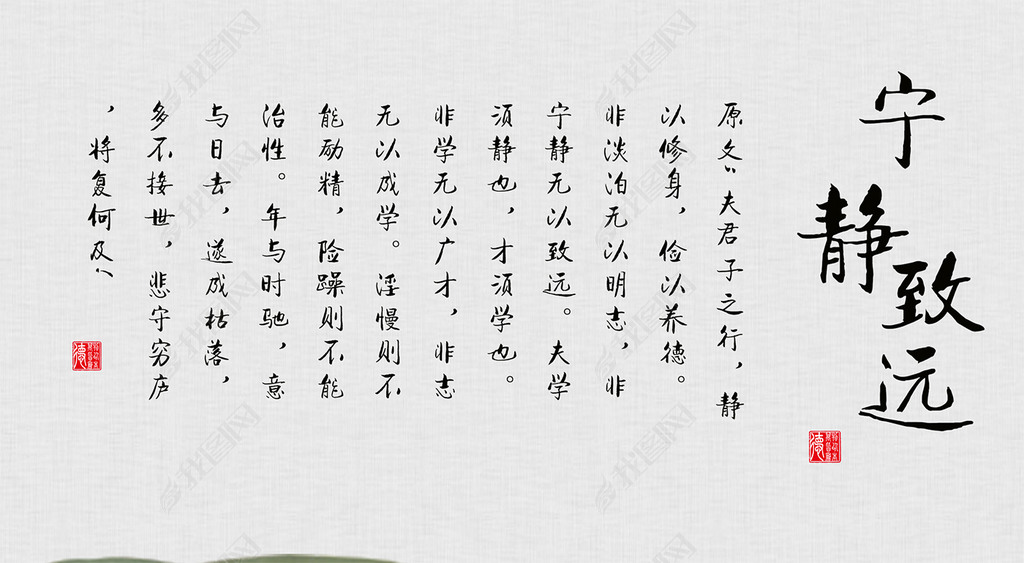 宁静致远
原文:夫君子之行，静
以修身，俭以养德。
非淡泊无以明志，非
宁静无以致远。夫学
须静也，才须学也。
非学无以广才，非志
无以成学。淫慢则不
能励精，险躁则不能
治性。年与时驰，意
与日去，遂成枯落，
多不接世，悲守穷庐
，将复何及
德
德